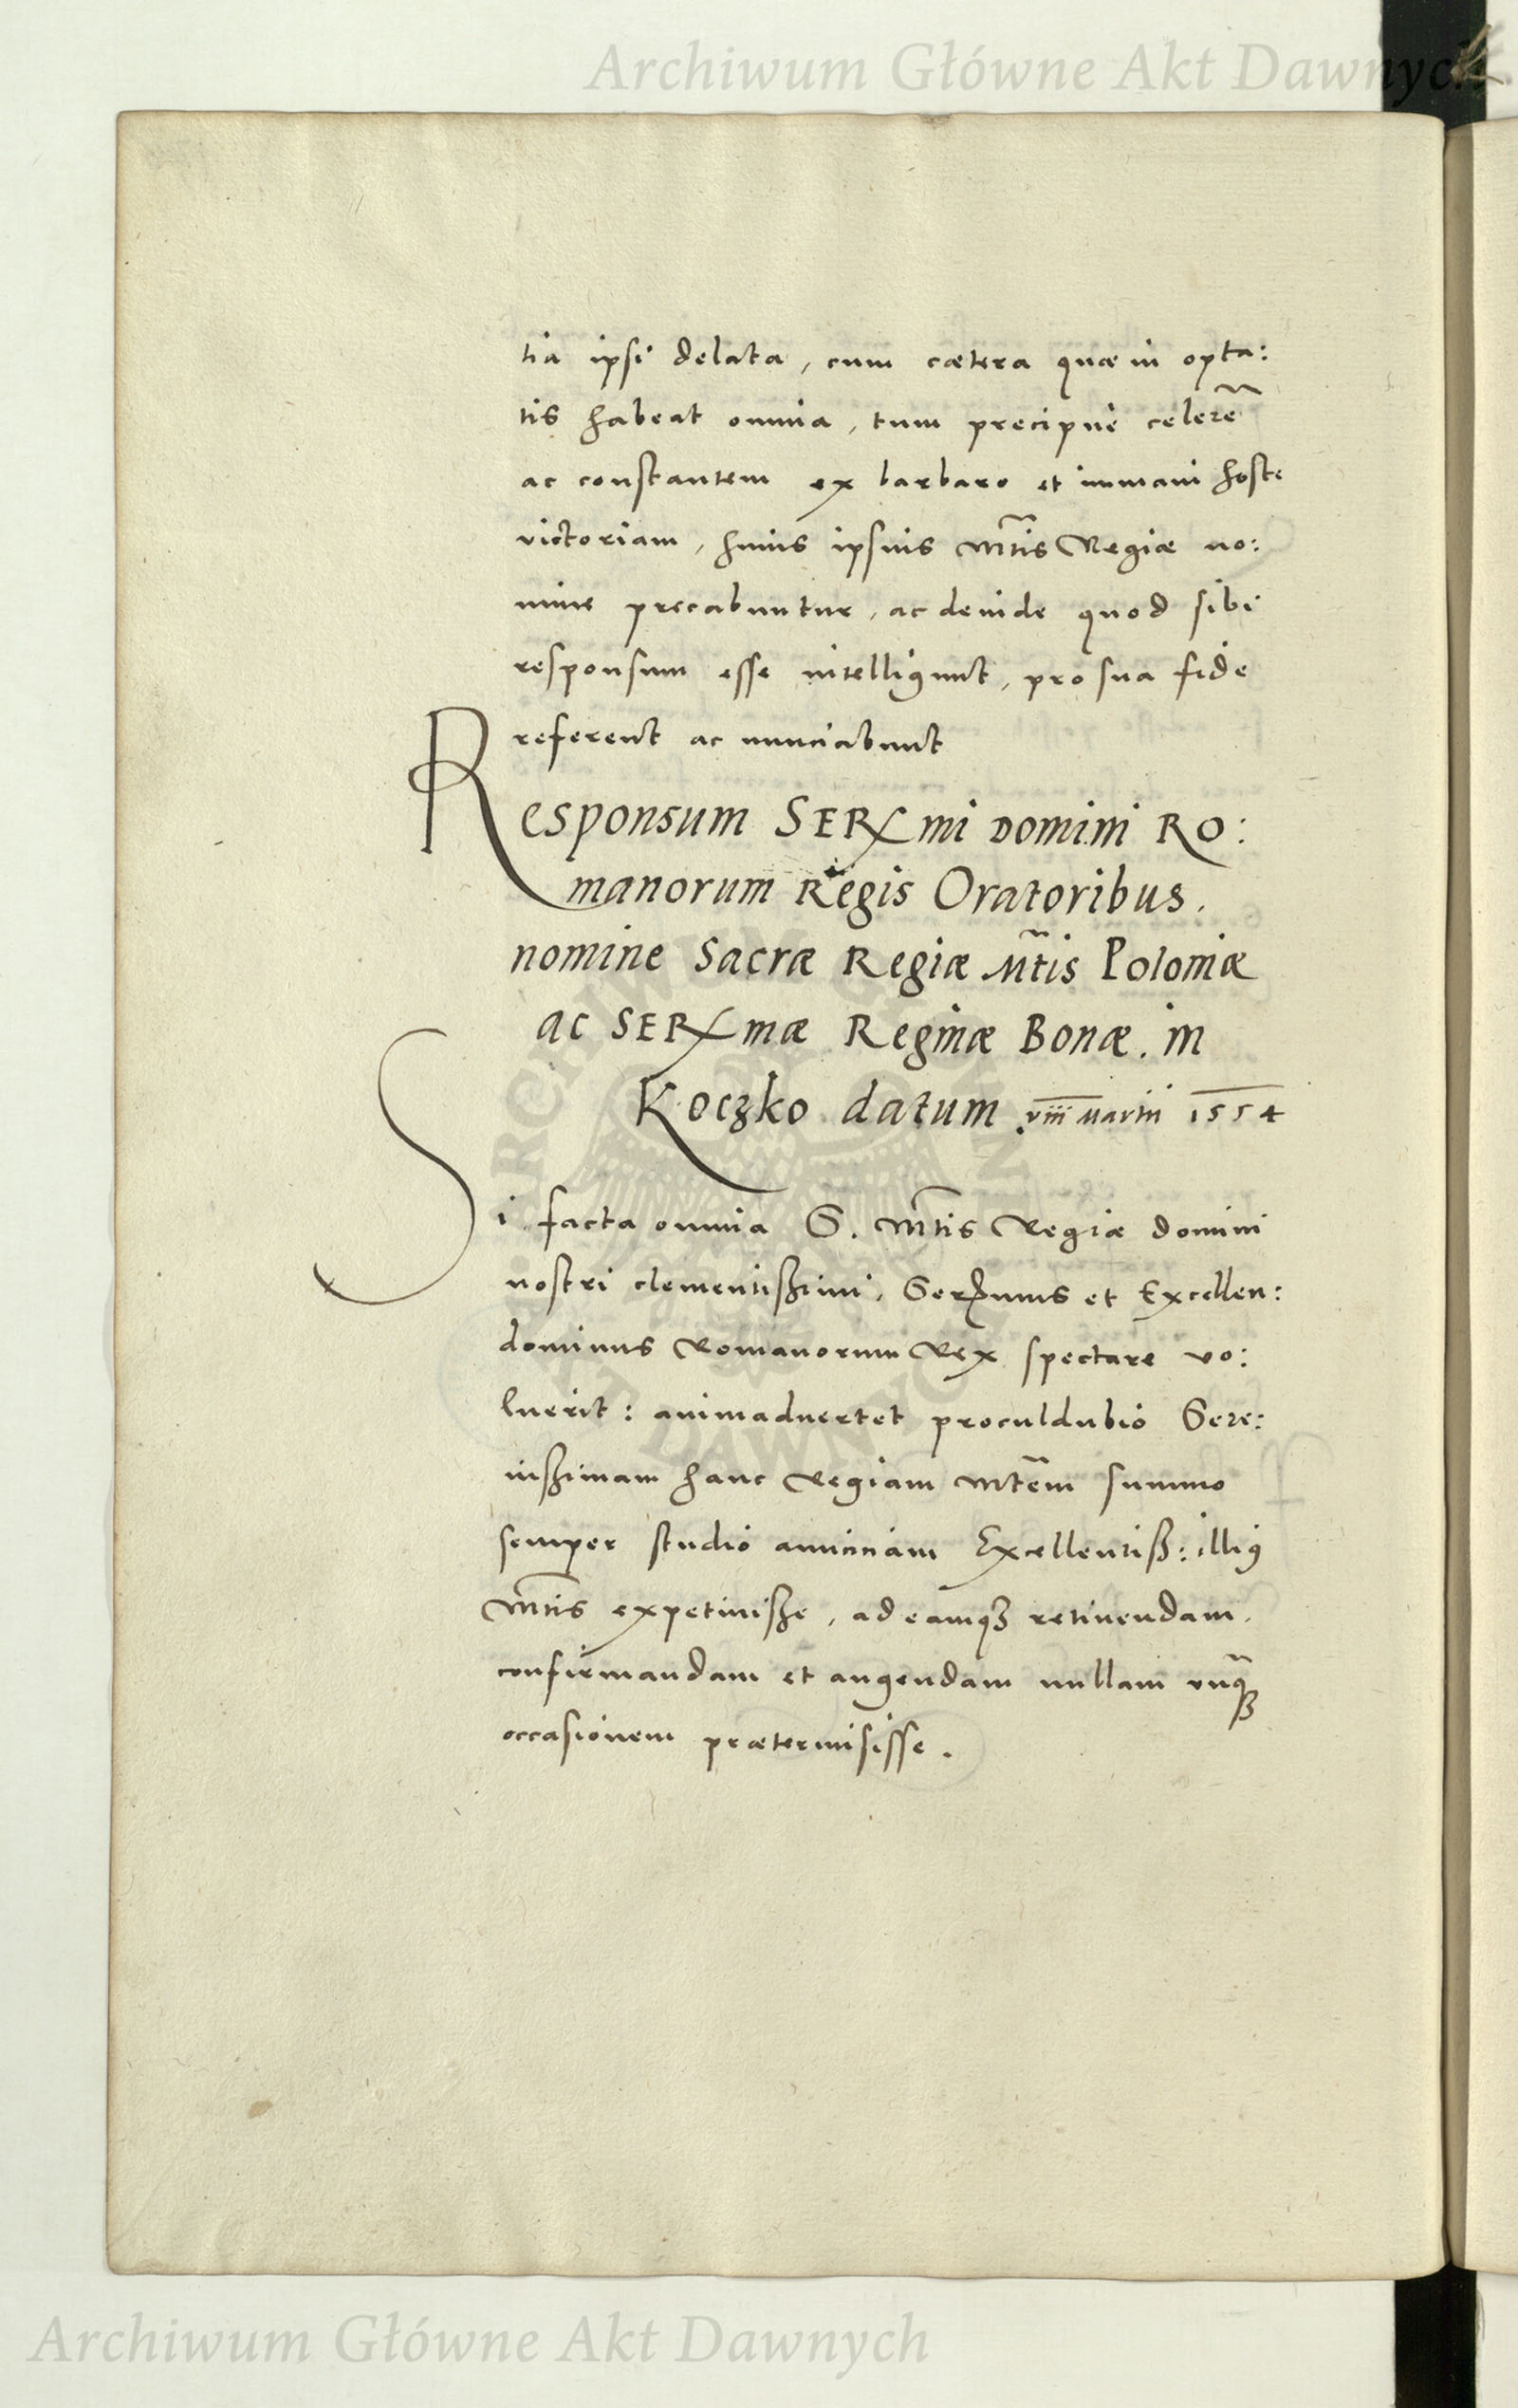 Archiwum Główne Akt Dawnych
tia ipsi delata, cum cætera quæ in opta:
tis habeat omnia, tum precipuè celerẽ
ac constantem ex barbaro et immani hoste
victoriam, huius ipsius Mtis Regiæ no:
mine precabuntur, ac deinde quod sibi
responsum esse intelligunt, pro sua fide
referent ac nunciabunt
Responsum SERmi Domini RO:
manorum Regis Oratoribus.
nomine Sacræ Regiæ Mtis Poloniæ
ac SERmæ Reginæ Bonæ. in
Koczko datum viii Martii 1554
Si facta omnia S. Mtis Regiæ domini
nostri clementißimi, Serxmus et Excellen:
dominus Romanorum Rex spectare vo:
luerit: animaduertet proculdubio Sere:
nißimam hanc Regiam Mtem summo
semper studio amicitiam Excellentiß: illiꝯ
Mtis expetiuiße, ad eamqꝫ retinendam,
confirmandam et augendam nullam vnq̃ꝫ
occasionem prætermisisse.
Archiwum Główne Akt Dawnych